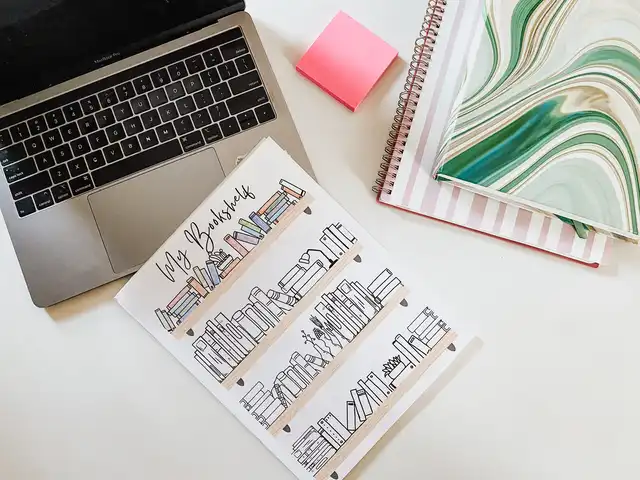 MacBook Pro
My Bookshelf